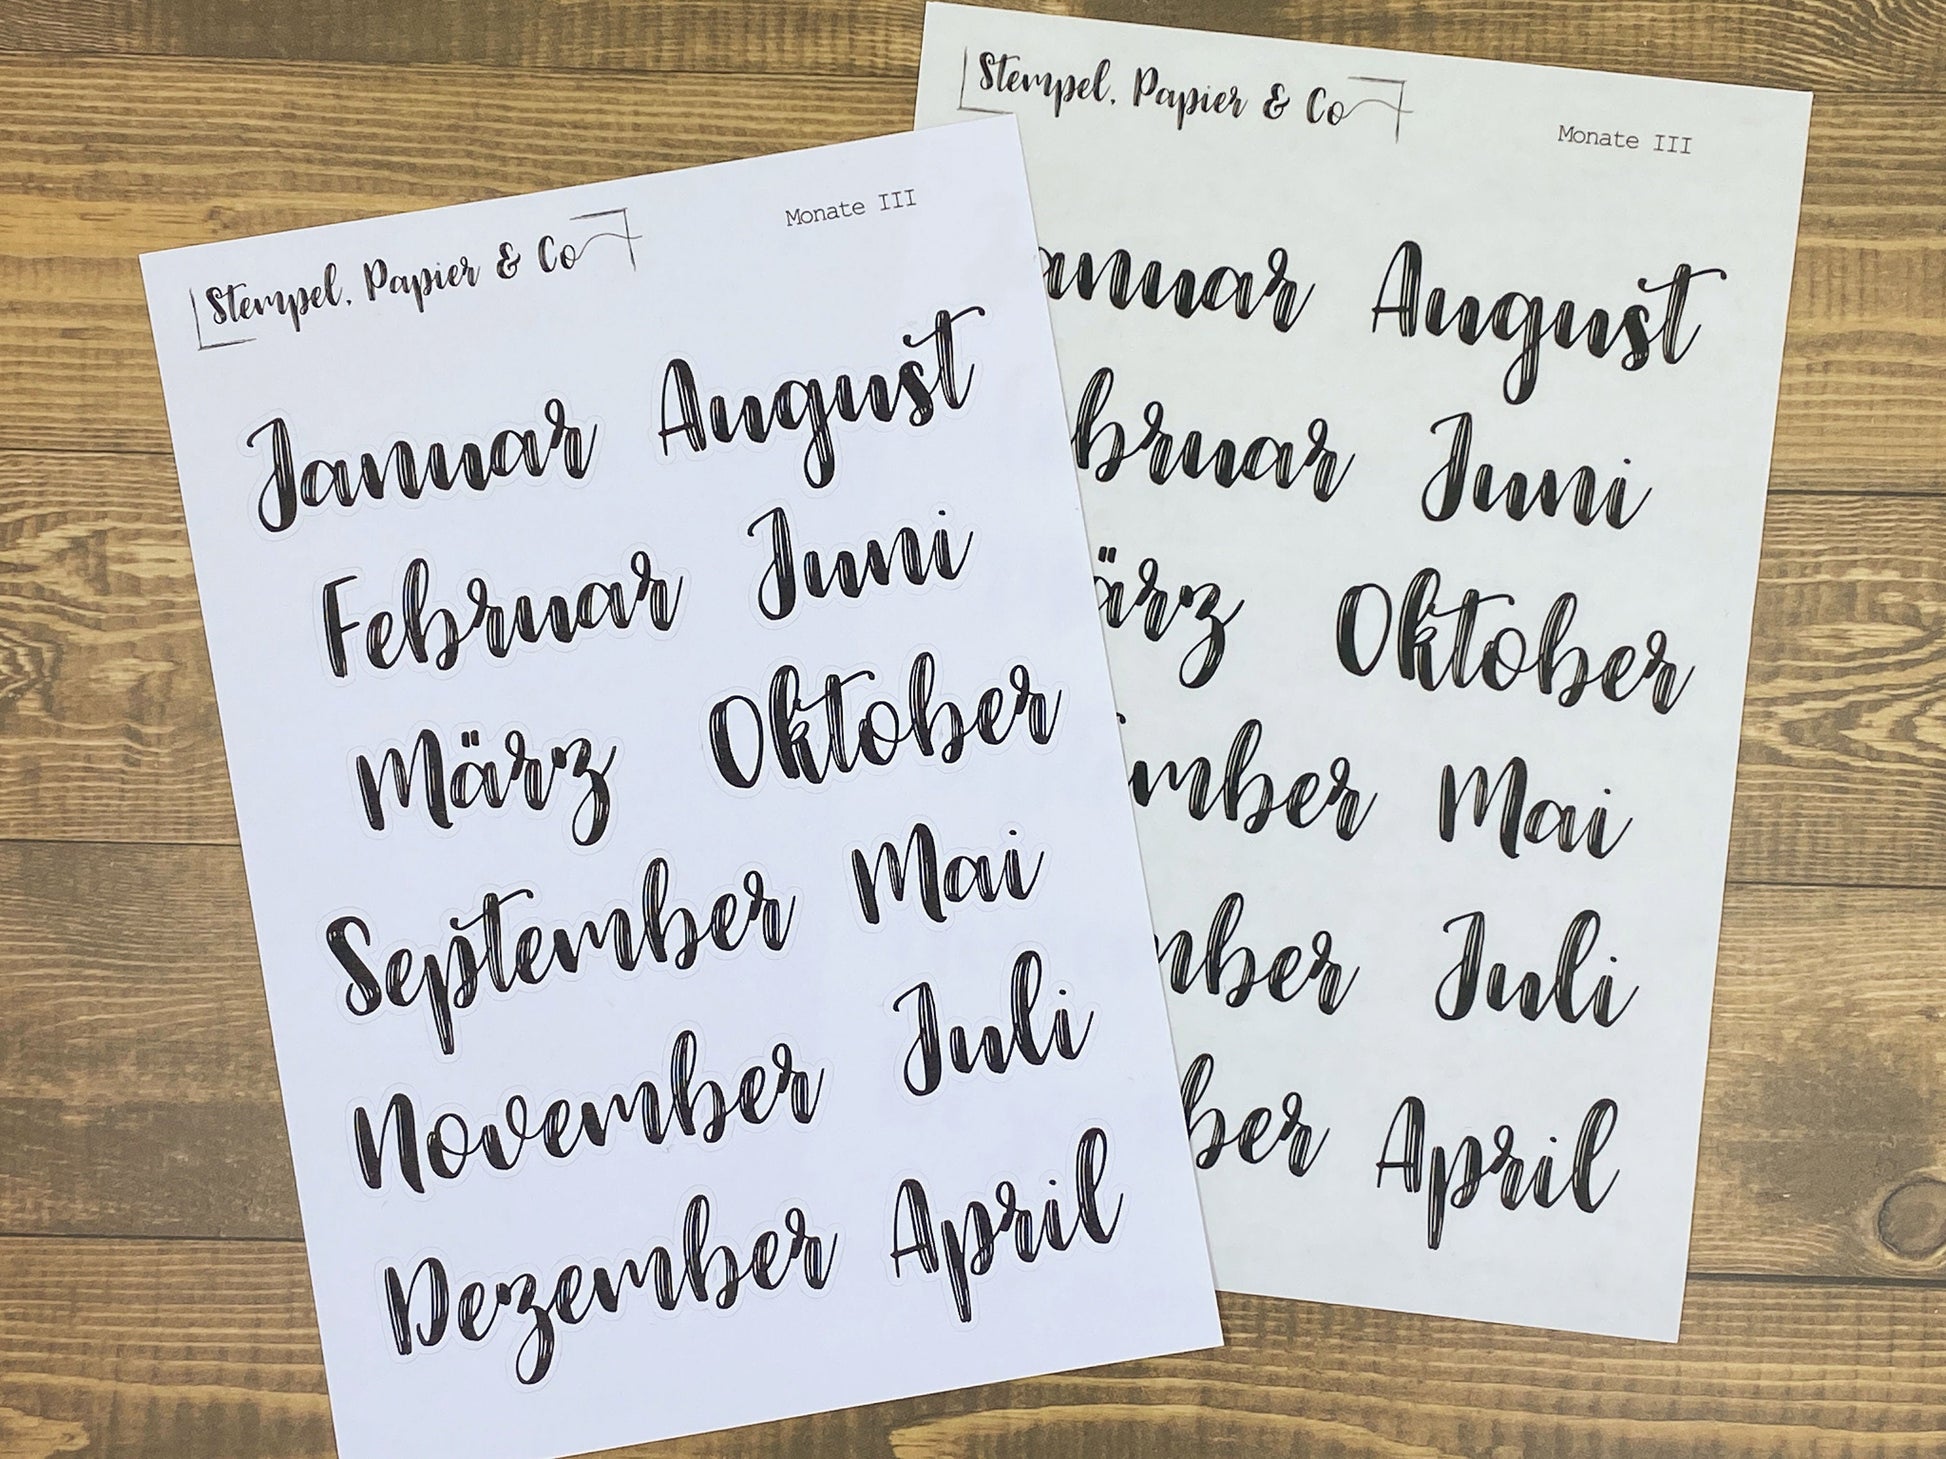 Stempel, Papier & Co
Monate III
Januar August
Februar Juni
März Oktober
September Mai
November Juli
Dezember April
Stempel, Papier & Co
Monate III
anuar August
bruar Juni
ärz Oktober
mber Mai
mber Juli
ber April